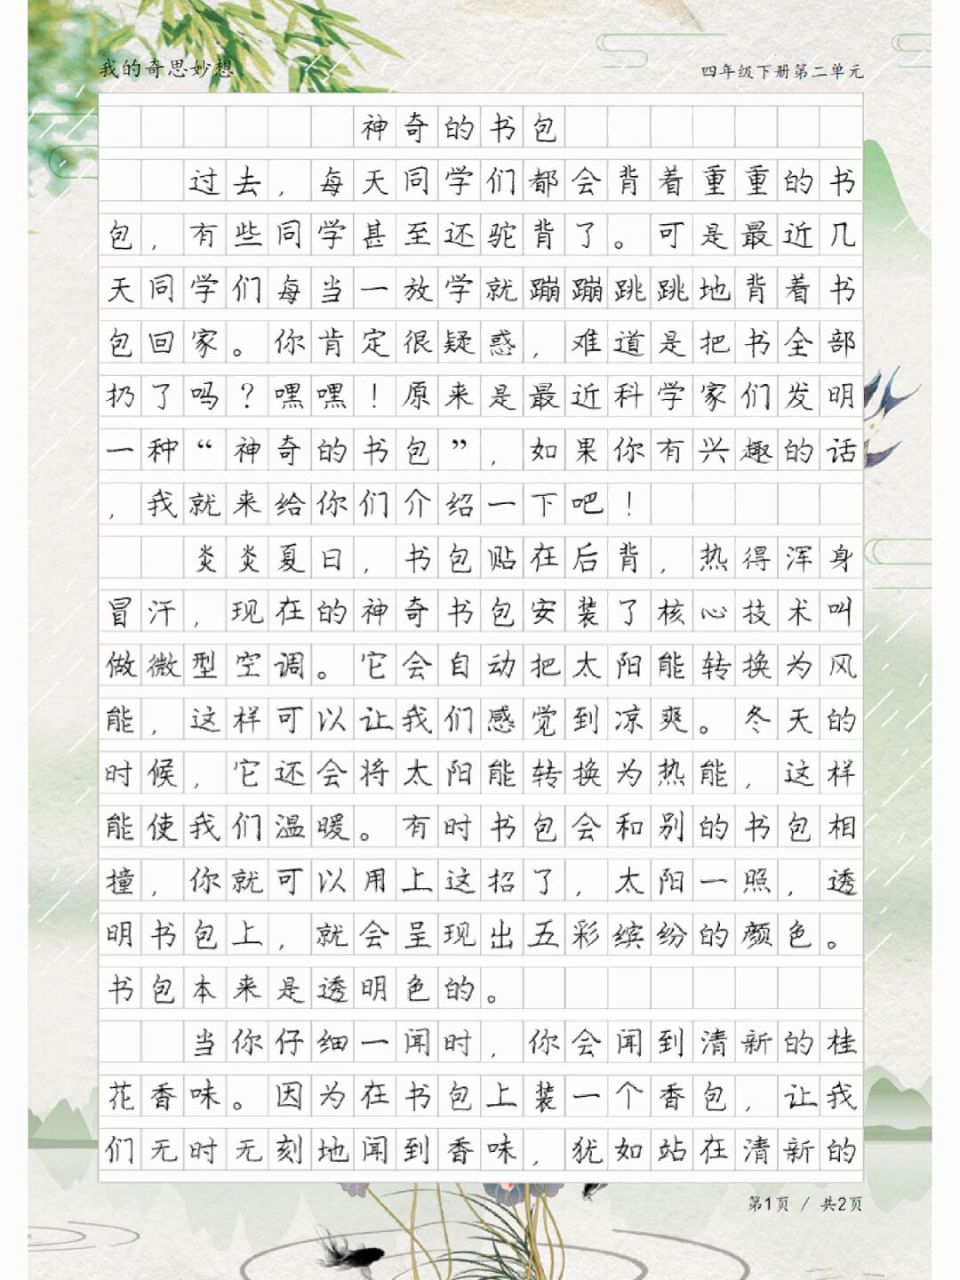 我的奇思妙想
四年级下册第二单元
神奇的书包
过去，每天同学们都会背着重重的书
包，有些同学甚至还驼背了。可是最近几
天同学们每当一放学就蹦蹦跳跳地背着书
包回家。你肯定很疑惑，难道是把书全部
扔了吗？嘿嘿！原来是最近科学家们发明
一种“神奇的书包”，如果你有兴趣的话
，我就来给你们介绍一下吧！
炎炎夏日，书包贴在后背，热得浑身
冒汗，现在的神奇书包安装了核心技术叫
做微型空调。它会自动把太阳能转换为风
能，这样可以让我们感觉到凉爽。冬天的
时候，它还会将太阳能转换为热能，这样
能使我们温暖。有时书包会和别的书包相
撞，你就可以用上这招了，太阳一照，透
明书包上，就会呈现出五彩缤纷的颜色。
书包本来是透明色的。
当你仔细一闻时，你会闻到清新的桂
花香味。因为在书包上装一个香包，让我
们无时无刻地闻到香味，犹如站在清新的
第1页 / 共2页